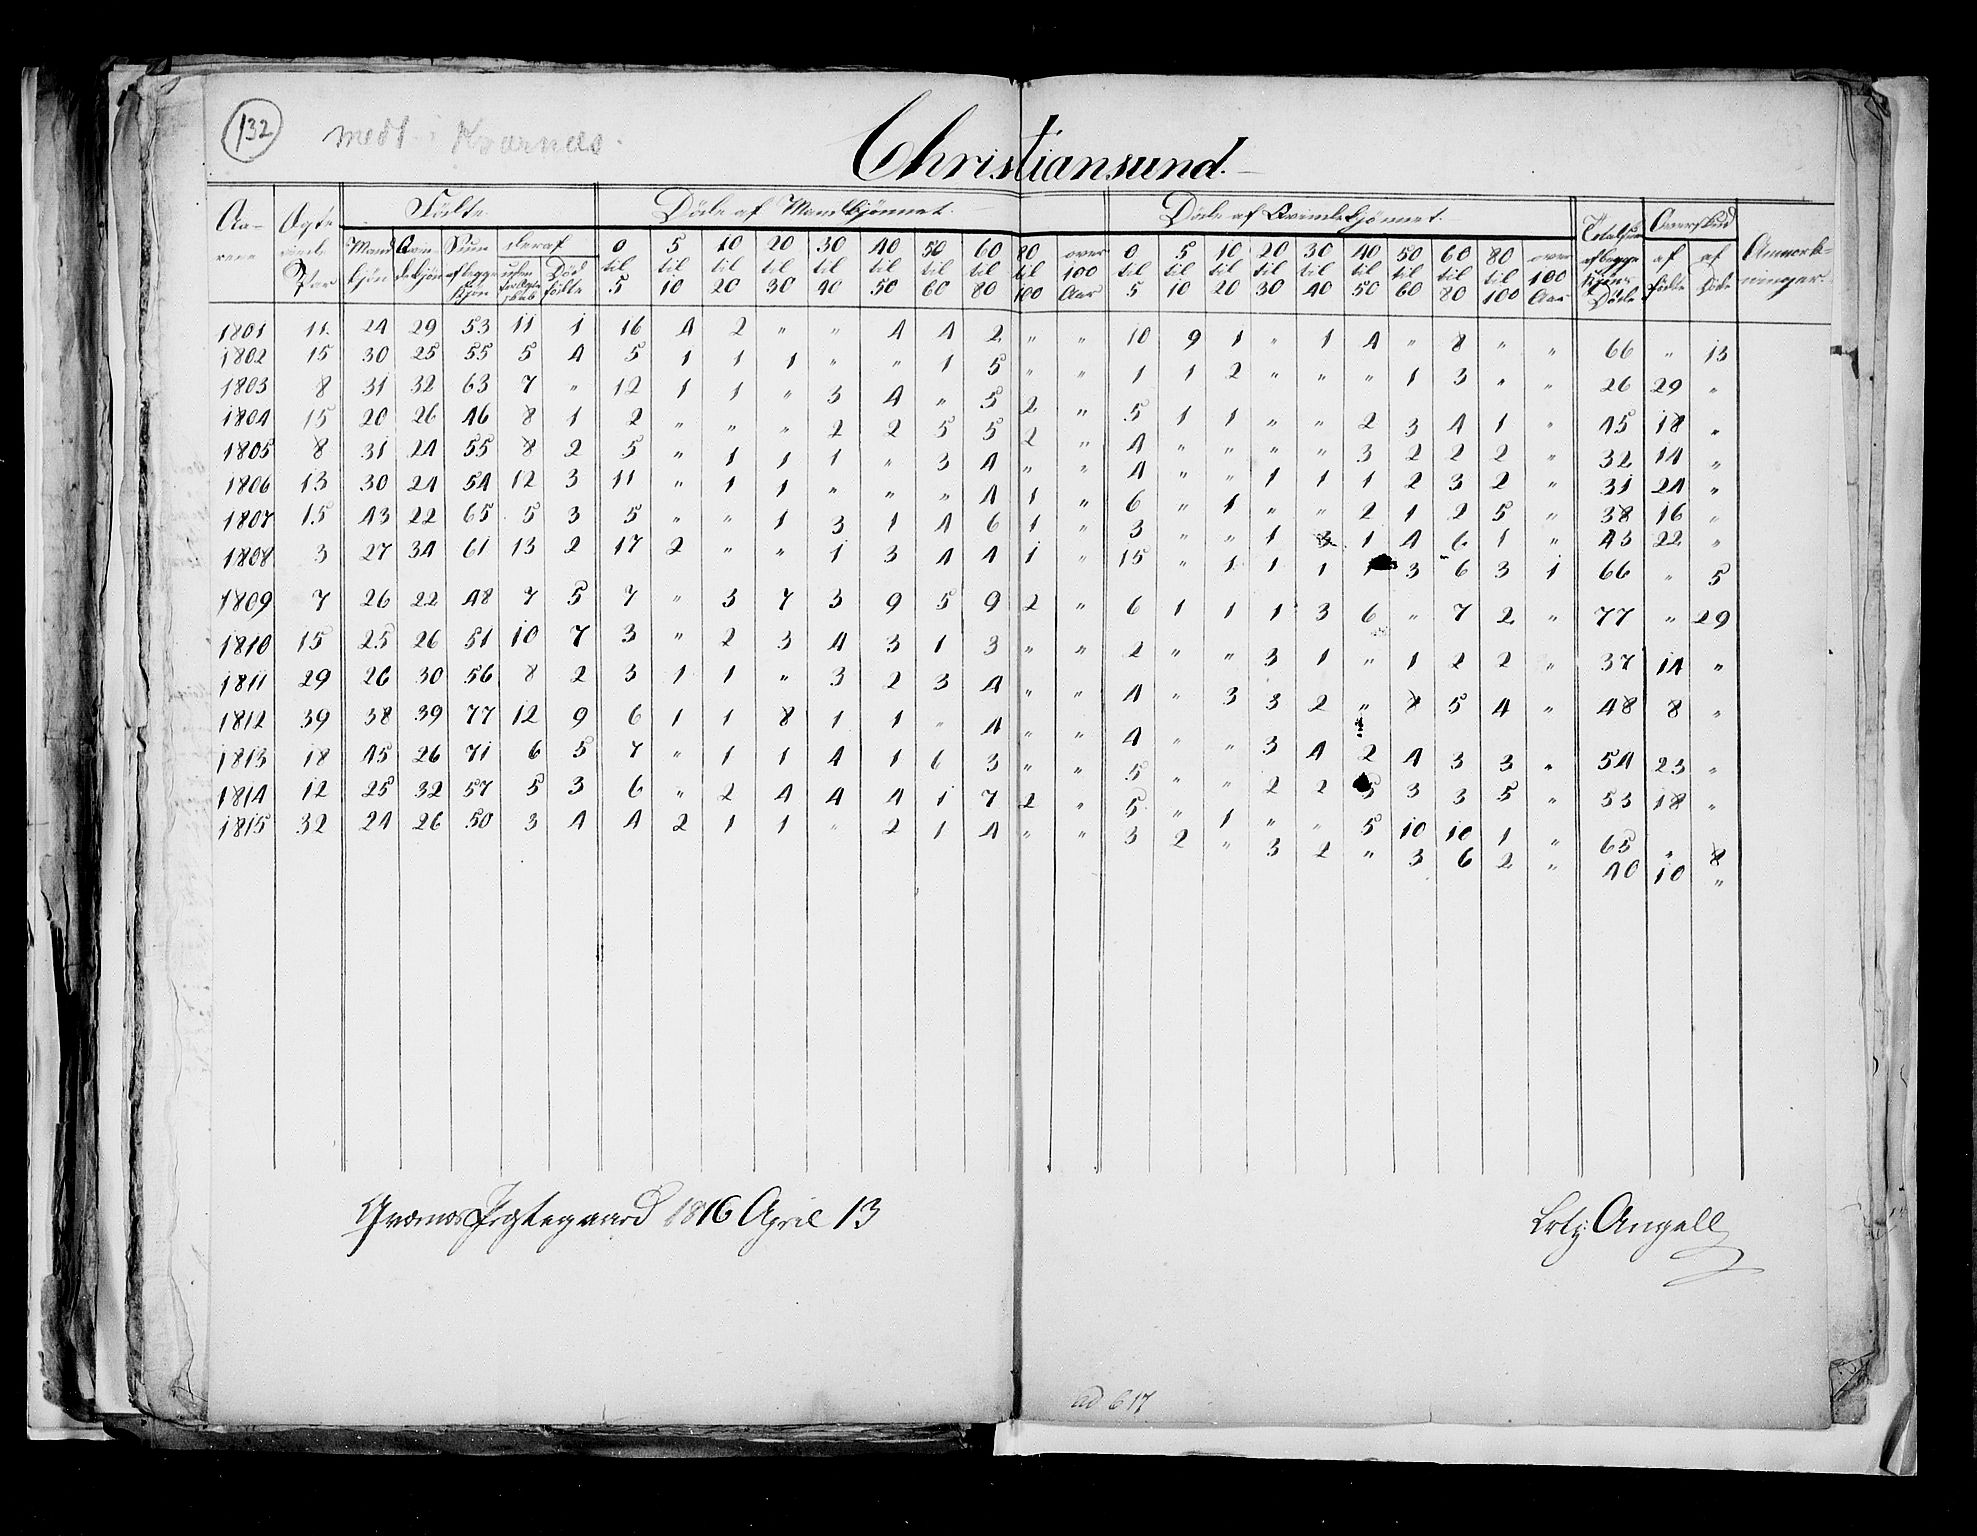 132
medt. i Kvarnæs.
Christiansund.
Aa- Ægte Födte Döde af Mandkjönnet. Döde af Qvindekjönnet. Totalsum Overskud Anmærk-
rene viede Par Mand kjön Qvin dekjön Sum af begge Kjön deraf Död födte 0 til 5 5 til 10 10 til 20 20 til 30 30 til 40 40 til 50 50 til 60 60 til 80 80 til 100 over 100 Aar 0 til 5 5 til 10 10 til 20 20 til 30 30 til 40 40 til 50 50 til 60 60 til 80 80 til 100 over 100 Aar af begge Kjöns Döde af födte af Döde ninger.
1801 11 24 29 53 11 1 16 4 2 " " 4 4 2 " " 10 9 1 " 1 4 " 8 " " 66 " 13
1802 15 30 25 55 5 4 5 1 1 1 " " 1 5 " " 1 1 2 " " " 1 3 " " 26 29 "
1803 8 31 32 63 7 " 12 1 1 " 3 4 " 5 2 " 5 1 1 " " 2 3 4 1 " 45 18 "
1804 15 20 26 46 8 1 2 " " " 2 2 5 5 2 " 4 " " " " 3 2 2 2 " 32 14 "
1805 8 31 24 55 8 2 5 " 1 1 1 " 3 4 " " 4 " " 1 1 1 2 3 2 " 31 24 "
1806 13 30 24 54 12 3 11 " 1 1 " " " 4 1 " 6 " 1 " " 2 1 2 5 " 38 16 "
1807 15 43 22 65 5 3 5 " " 1 3 1 4 6 1 " 3 " " 1 3 1 4 6 1 " 43 22 "
1808 3 27 34 61 13 2 17 2 " " 1 3 4 4 1 " 15 " 1 1 1 1 3 6 3 1 66 " 5
1809 7 26 22 48 7 5 7 " 3 7 3 9 5 9 2 " 6 1 1 1 3 6 " 7 2 " 77 " 29
1810 15 25 26 51 10 7 3 " 2 3 4 3 1 3 " " 2 " " 3 1 " 1 2 2 " 37 14 "
1811 29 26 30 56 8 2 3 1 1 " 3 2 3 4 " " 4 " 3 3 2 " 8 5 4 " 48 8 "
1812 39 38 39 77 12 9 6 1 1 8 1 1 " 4 " " 4 " " 3 4 2 4 3 3 " 54 23 "
1813 18 45 26 71 6 5 7 " 1 1 4 1 6 3 " " 5 " " 2 2 5 3 3 5 " 53 18 "
1814 12 25 32 57 5 3 6 " 2 4 4 4 1 7 2 " 5 " 1 " " 5 10 10 1 " 65 " 8
1815 32 24 26 50 3 4 4 2 1 1 " 2 1 4 " " 3 2 " 3 2 " 3 6 2 " 40 10 "
Qvernes Prestegaard 1816 April 13
Angell
ad 617